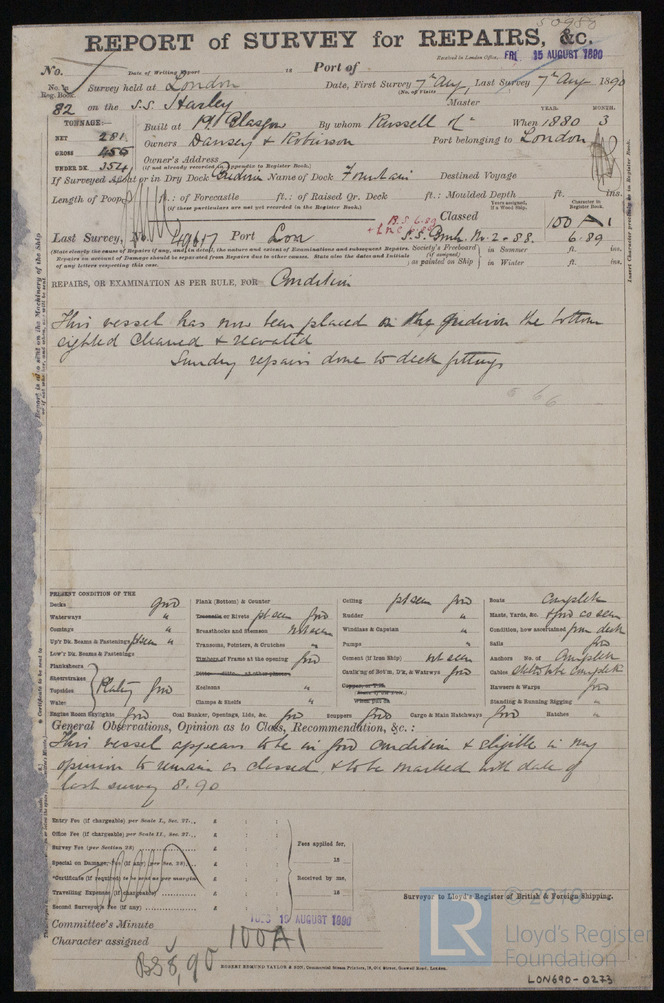 50988
REPORT of SURVEY for REPAIRS, &c.
Received in London Office, FRI. 15 AUGUST 1890
No. Date of Writing Report 18 Port of
No. in Reg. Book. Survey held at London Date, First Survey 7th Aug, Last Survey 7th Aug 1890
(No. of Visits
82 on the S.S. Harley Master
TONNAGE:— Built at Pt Glasgow By whom Russell & Co When 1880 YEAR. MONTH. 3
NET 281 Owners Dansey & Robinson Port belonging to London
GROSS 455 Owner's Address
(if not already recorded in Appendix to Register Book.)
UNDER DK. 354
If Surveyed Afloat or in Dry Dock Name of Dock Fountain Destined Voyage
Length of Poop ft.: of Forecastle ft.: of Raised Qr. Deck ft.: Moulded Depth ft. ins.
(if these particulars are not yet recorded in the Register Book.)
Years assigned, if a Wood Ship. Character in Register Book.
B.S. 6.89 Classed 100 A 1
Last Survey, No. 49617 Port Lon S.S. No. 2 - 88. 6.89
(State clearly the cause of Repairs, if any, and, in detail, the nature and extent of Examinations and subsequent Repairs.
Repairs on account of Damage should be separated from Repairs due to other causes. State also the dates and Initials
of any letters respecting this case.
Society's Freeboard (if assigned) as painted on Ship } in Summer ft. ins.
in Winter ft. ins.
REPAIRS, OR EXAMINATION AS PER RULE, FOR Condition
This vessel has now been placed on the the bottom
sighted cleaned & recoated
Sundry repairs done to deck fittings
PRESENT CONDITION OF THE
Decks good Plank (Bottom) & Counter Ceiling pt seen good Boats Complete
Waterways " Treenails or Rivets pt seen good Rudder " Masts, Yards, &c. good as seen
Comings " Breasthooks and Stemson not seen Windlass & Capstan " Condition, how ascertained from deck
Up'r Dk. Beams & Fastenings pt seen " Transoms, Pointers, & Crutches " Pumps " Sails good
Low'r Dk. Beams & Fastenings Timbers of Frames at the opening good Cement (if Iron Ship) not seen Anchors No. of Complete
Plankshears Ditto ditto at other places Caulk'g of Bot'm, D'k, & Waterways good Cables stated to be complete
Sheerstrakes Keelsons " Copper, or Y.M. Hawsers & Warps good
Topsides } Plating good Clamps & Shelfs " When put on Standing & Running Rigging "
Wales
Engine Room Skylights good Coal Bunker, Openings, Lids, &c. good Scuppers good Cargo & Main Hatchways good Hatches "
General Observations, Opinion as to Class, Recommendation, &c. :
This vessel appears to be in good condition & eligible in my
opinion to remain as classed & to be marked with date of
last survey 8.90
Entry Fee (if chargeable) per Scale I., Sec. 27... £ : :
Office Fee (if chargeable) per Scale II., Sec. 27... £ : :
Survey Fee (per Section 28) £ : :
Special on Damage Fee (if any) (per Sec. 28)... £ : :
*Certificate (if required) to be sent as per margin £ : :
Travelling Expenses (if chargeable) £ : :
Second Surveyor's Fee (if any) £ : :
Fees applied for,
18
Received by me,
18
Surveyor to Lloyd's Register of British & Foreign Shipping.
Committee's Minute TUES 19 AUGUST 1890
Character assigned 100A1
BS 8,90
ROBERT EDMUND TAYLOR & SON, Commercial Steam Printers, 19, Old Street, Goswell Road, London.
LR
© 2019
Lloyd's Register
Foundation
LON690-0273